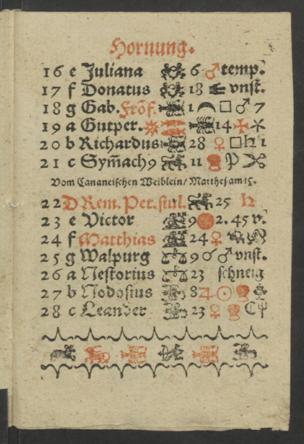 Hornung.
16 e Juliana 6 ♂ temp.
17 f Donatus 18 vnst.
18 g Gab. Frőf. 1 ☽ □ ♂ 7
19 a Gutper. 14
20 b Richardus 28 ♀ □ ♄ 1
21 c Sym̃ach9 11
Vom Cananeischen Weiblein/ Matthej am 15.
22 D Rem. Pet. stul. 25 ♄
23 e Victor 9 2. 45 v.
24 f Matthias 24 ♀
25 g Walpurg 9 ☌ ♂ vnst.
26 a Nestorius 23 schneig
27 b Nodosius 8 ♃ ☉
28 c Leander 23 ♀